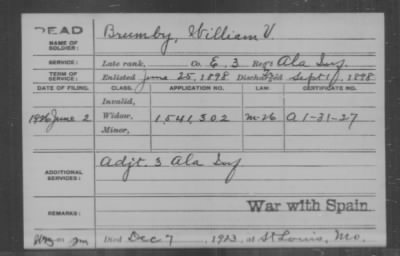 DEAD Brumby, William V.
NAME OF SOLDIER:
SERVICE: Late rank, Co. E, 3 Reg't Ala Inf
TERM OF SERVICE: Enlisted June 25, 1898 Discharged Sept 1, 1898
DATE OF FILING. CLASS. APPLICATION NO. LAW. CERTIFICATE NO.
Invalid,
1926 June 2 Widow, 1,541,302 M-26 A 1-31-27
Minor,
ADDITIONAL SERVICES: Adjt. 3 Ala Inf
REMARKS: War with Spain
Died Dec 7, 1923, at St Louis, Mo.